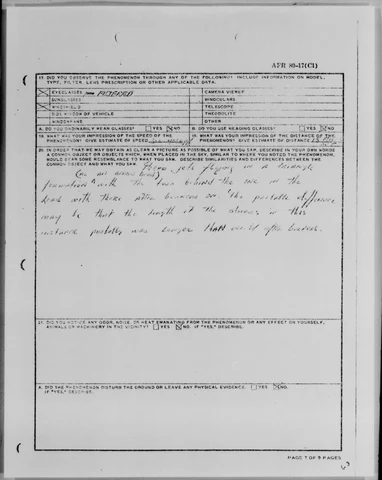 AFR 80-17(C1)
17. DID YOU OBSERVE THE PHENOMENON THROUGH ANY OF THE FOLLOWING? INCLUDE INFORMATION ON MODEL, TYPE, FILTER, LENS PRESCRIPTION OR OTHER APPLICABLE DATA.
EYEGLASSES
CAMERA VIEWER
SUNGLASSES
BINOCULARS
WINDSHIELD
TELESCOPE
SIDE WINDOW OF VEHICLE
THEODOLITE
WINDOWPANE
OTHER
A. DO YOU ORDINARILY WEAR GLASSES? YES NO
B. DO YOU USE READING GLASSES? YES NO
18. WHAT WAS YOUR IMPRESSION OF THE SPEED OF THE PHENOMENON? GIVE ESTIMATE OF SPEED
19. WHAT WAS YOUR IMPRESSION OF THE DISTANCE OF THE PHENOMENON? GIVE ESTIMATE OF DISTANCE
20. IN ORDER THAT WE MAY OBTAIN AS CLEAR A PICTURE AS POSSIBLE OF WHAT YOU SAW, DESCRIBE IN YOUR OWN WORDS
A COMMON OBJECT OR OBJECTS WHICH, WHEN PLACED IN THE SKY, SIMILAR TO WHERE YOU NOTED THE PHENOMENON,
WOULD BEAR SOME RESEMBLANCE TO WHAT YOU SAW. DESCRIBE SIMILARITIES AND DIFFERENCES BETWEEN THE
COMMON OBJECT AND WHAT YOU SAW.
jets flying in a
formation with the two behind the one in the
lead with their after burners on. The
may be that the length of the in this
instance was longer than would after burners.
21. DID YOU NOTICE ANY ODOR, NOISE, OR HEAT EMANATING FROM THE PHENOMENON OR ANY EFFECT ON YOURSELF,
ANIMALS OR MACHINERY IN THE VICINITY? YES NO. IF "YES," DESCRIBE.
A. DID THE PHENOMENON DISTURB THE GROUND OR LEAVE ANY PHYSICAL EVIDENCE. YES NO
IF "YES," DESCRIBE.
PAGE 7 OF 9 PAGES